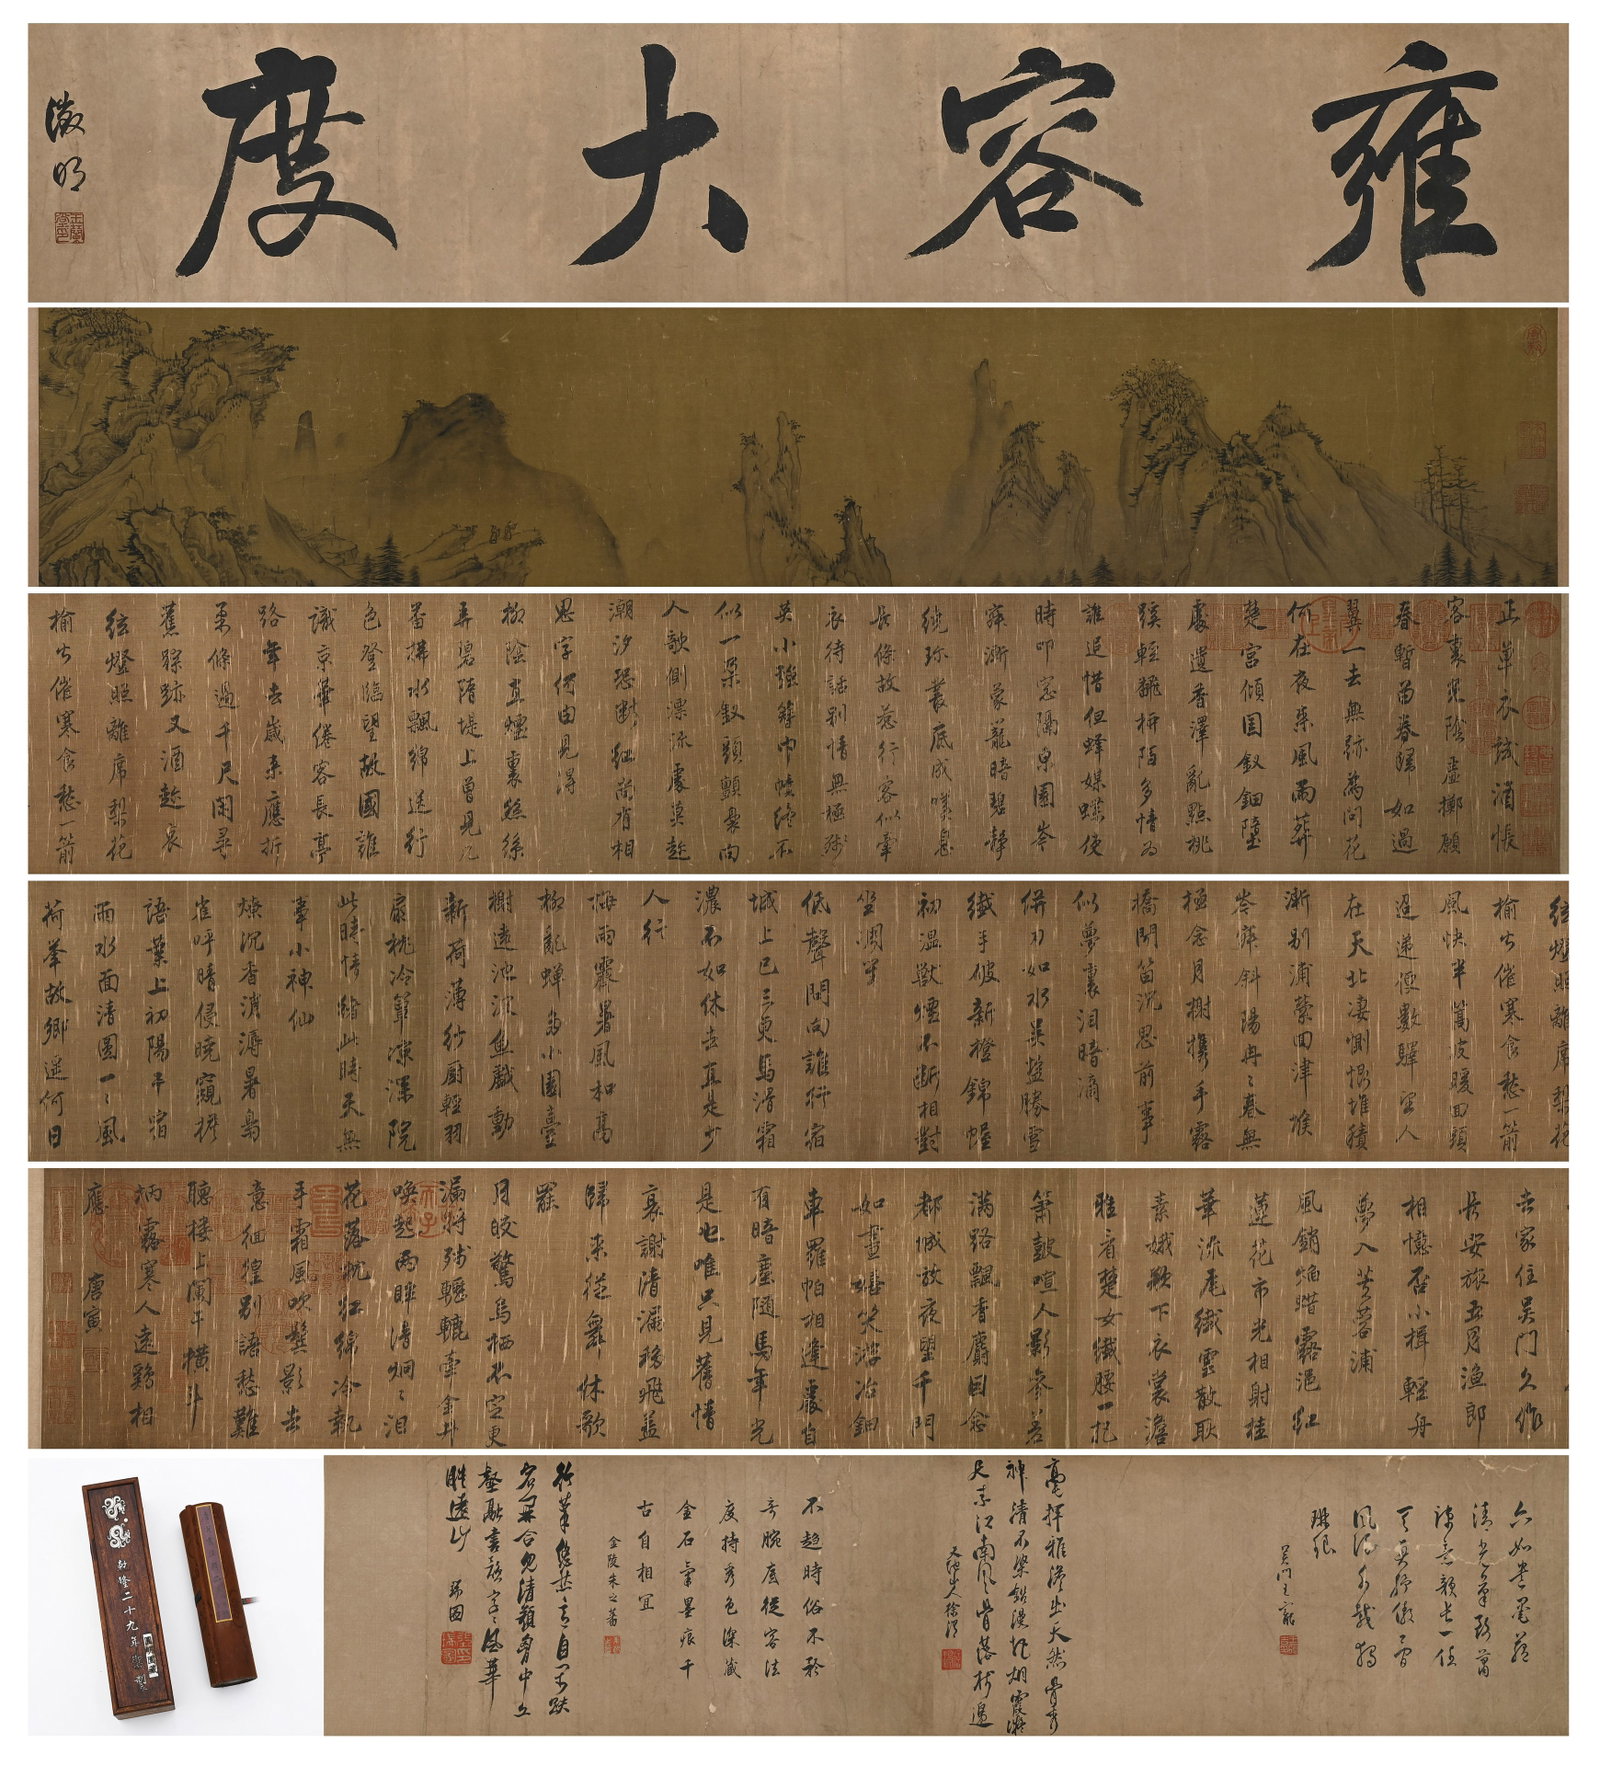 雍容大度
徵明
正單衣試酒悵
客裏光陰虛擲願
春暫留春歸如過
翼一去無跡為問花
何在夜來風雨葬
楚宮傾國釵鈿墮
處遺香澤亂點桃
蹊輕翻柳陌多情為
誰追惜但蜂媒蝶使
時叩窗隔東園岑
寂漸蒙籠暗碧靜
繞珍叢底成嘆息
長條故惹行客似牽
衣待話別情無極殘
英小強簪巾幘終不
似一朵釵頭顫裊向
人欹側漂流處莫趁
潮汐恐斷紅尚有相
思字何由見得
柳陰直煙裏絲絲
弄碧隋堤上曾見幾
番拂水飄綿送行
色登臨望故國誰
識京華倦客長亭
路年去歲來應折
柔條過千尺閑尋
舊蹤跡又酒趁哀
絃燈照離席梨花
榆火催寒食愁一箭
絃燈照離席梨花
榆火催寒食愁一箭
風快半篙波暖回頭
迢遞便數驛望人
在天北悽惻恨堆積
漸別浦縈回津堠
岑寂斜陽冉冉春無
極念月榭攜手露
橋聞笛沉思前事
似夢裏淚暗滴
併刀如水吳鹽勝雪
纖手破新橙錦幄
初溫獸煙不斷相對
坐調笙
低聲問向誰行宿
城上已三更馬滑霜
濃不如休去直是少
人行
梅雨霽暑風和高
柳亂蟬多小園臺
榭遠池波魚戲動
新荷薄紗厨輕羽
扇枕冷簟涼深院
此時情緒此時天無
事小神仙
燎沉香消溽暑鳥
雀呼晴侵曉窺檐
語葉上初陽乾宿
雨水面清圓一一風
荷舉故鄉遙何日
去家住吳門久作
長安旅五月漁郎
相憶否小楫輕舟
夢入芙蓉浦
風銷焰蠟露浥紅
蓮花市光相射桂
華流瓦纖雲散耿
素娥欲下衣裳澹
雅看楚女纖腰一把
簫鼓喧人影參差
滿路飄香麝因念
都城放夜望千門
如晝嬉笑遊冶鈿
車羅帕相逢處自
有暗塵隨馬年光
是也唯只見舊情
衰謝清漏移飛蓋
歸來從舞休歌
罷
月皎驚烏栖不定更
漏將殘轣轆牽金井
喚起兩眸清炯炯淚
花落枕紅綿冷執
手霜風吹鬢影去
意徊徨別語愁難
聽樓上闌干橫斗
柄露寒人遠雞相
應 唐寅
清光筆致蕭
疎意韻長一任
吳門王寵
毫揮雅澹出天然骨秀
神清不染鉛漫把烟霞凝
尺素江南風骨落梅邊
天池山人徐渭
不趨時俗不矜
奇腕底從容法
度持秀色深藏
金石氣墨痕千
古自相宜
金陵朱之蕃
行筆悠然意自閑跌
宕開合見清顏胸中丘
壑融書字字風華
勝遠山 瑞圖
乾隆二十九年